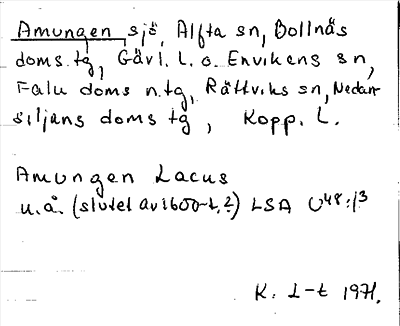 Amungen sjö, Alfta sn, Bollnäs
doms.tg, Gävl. L. o. Envikens sn,
Falu doms n.tg, Rättviks sn, Nedan-
siljans doms tg, Kopp. L.
Amungen Lacus
u.å. (slutet av 1600-t.?) LSA U48:13
K. L-t 1971.